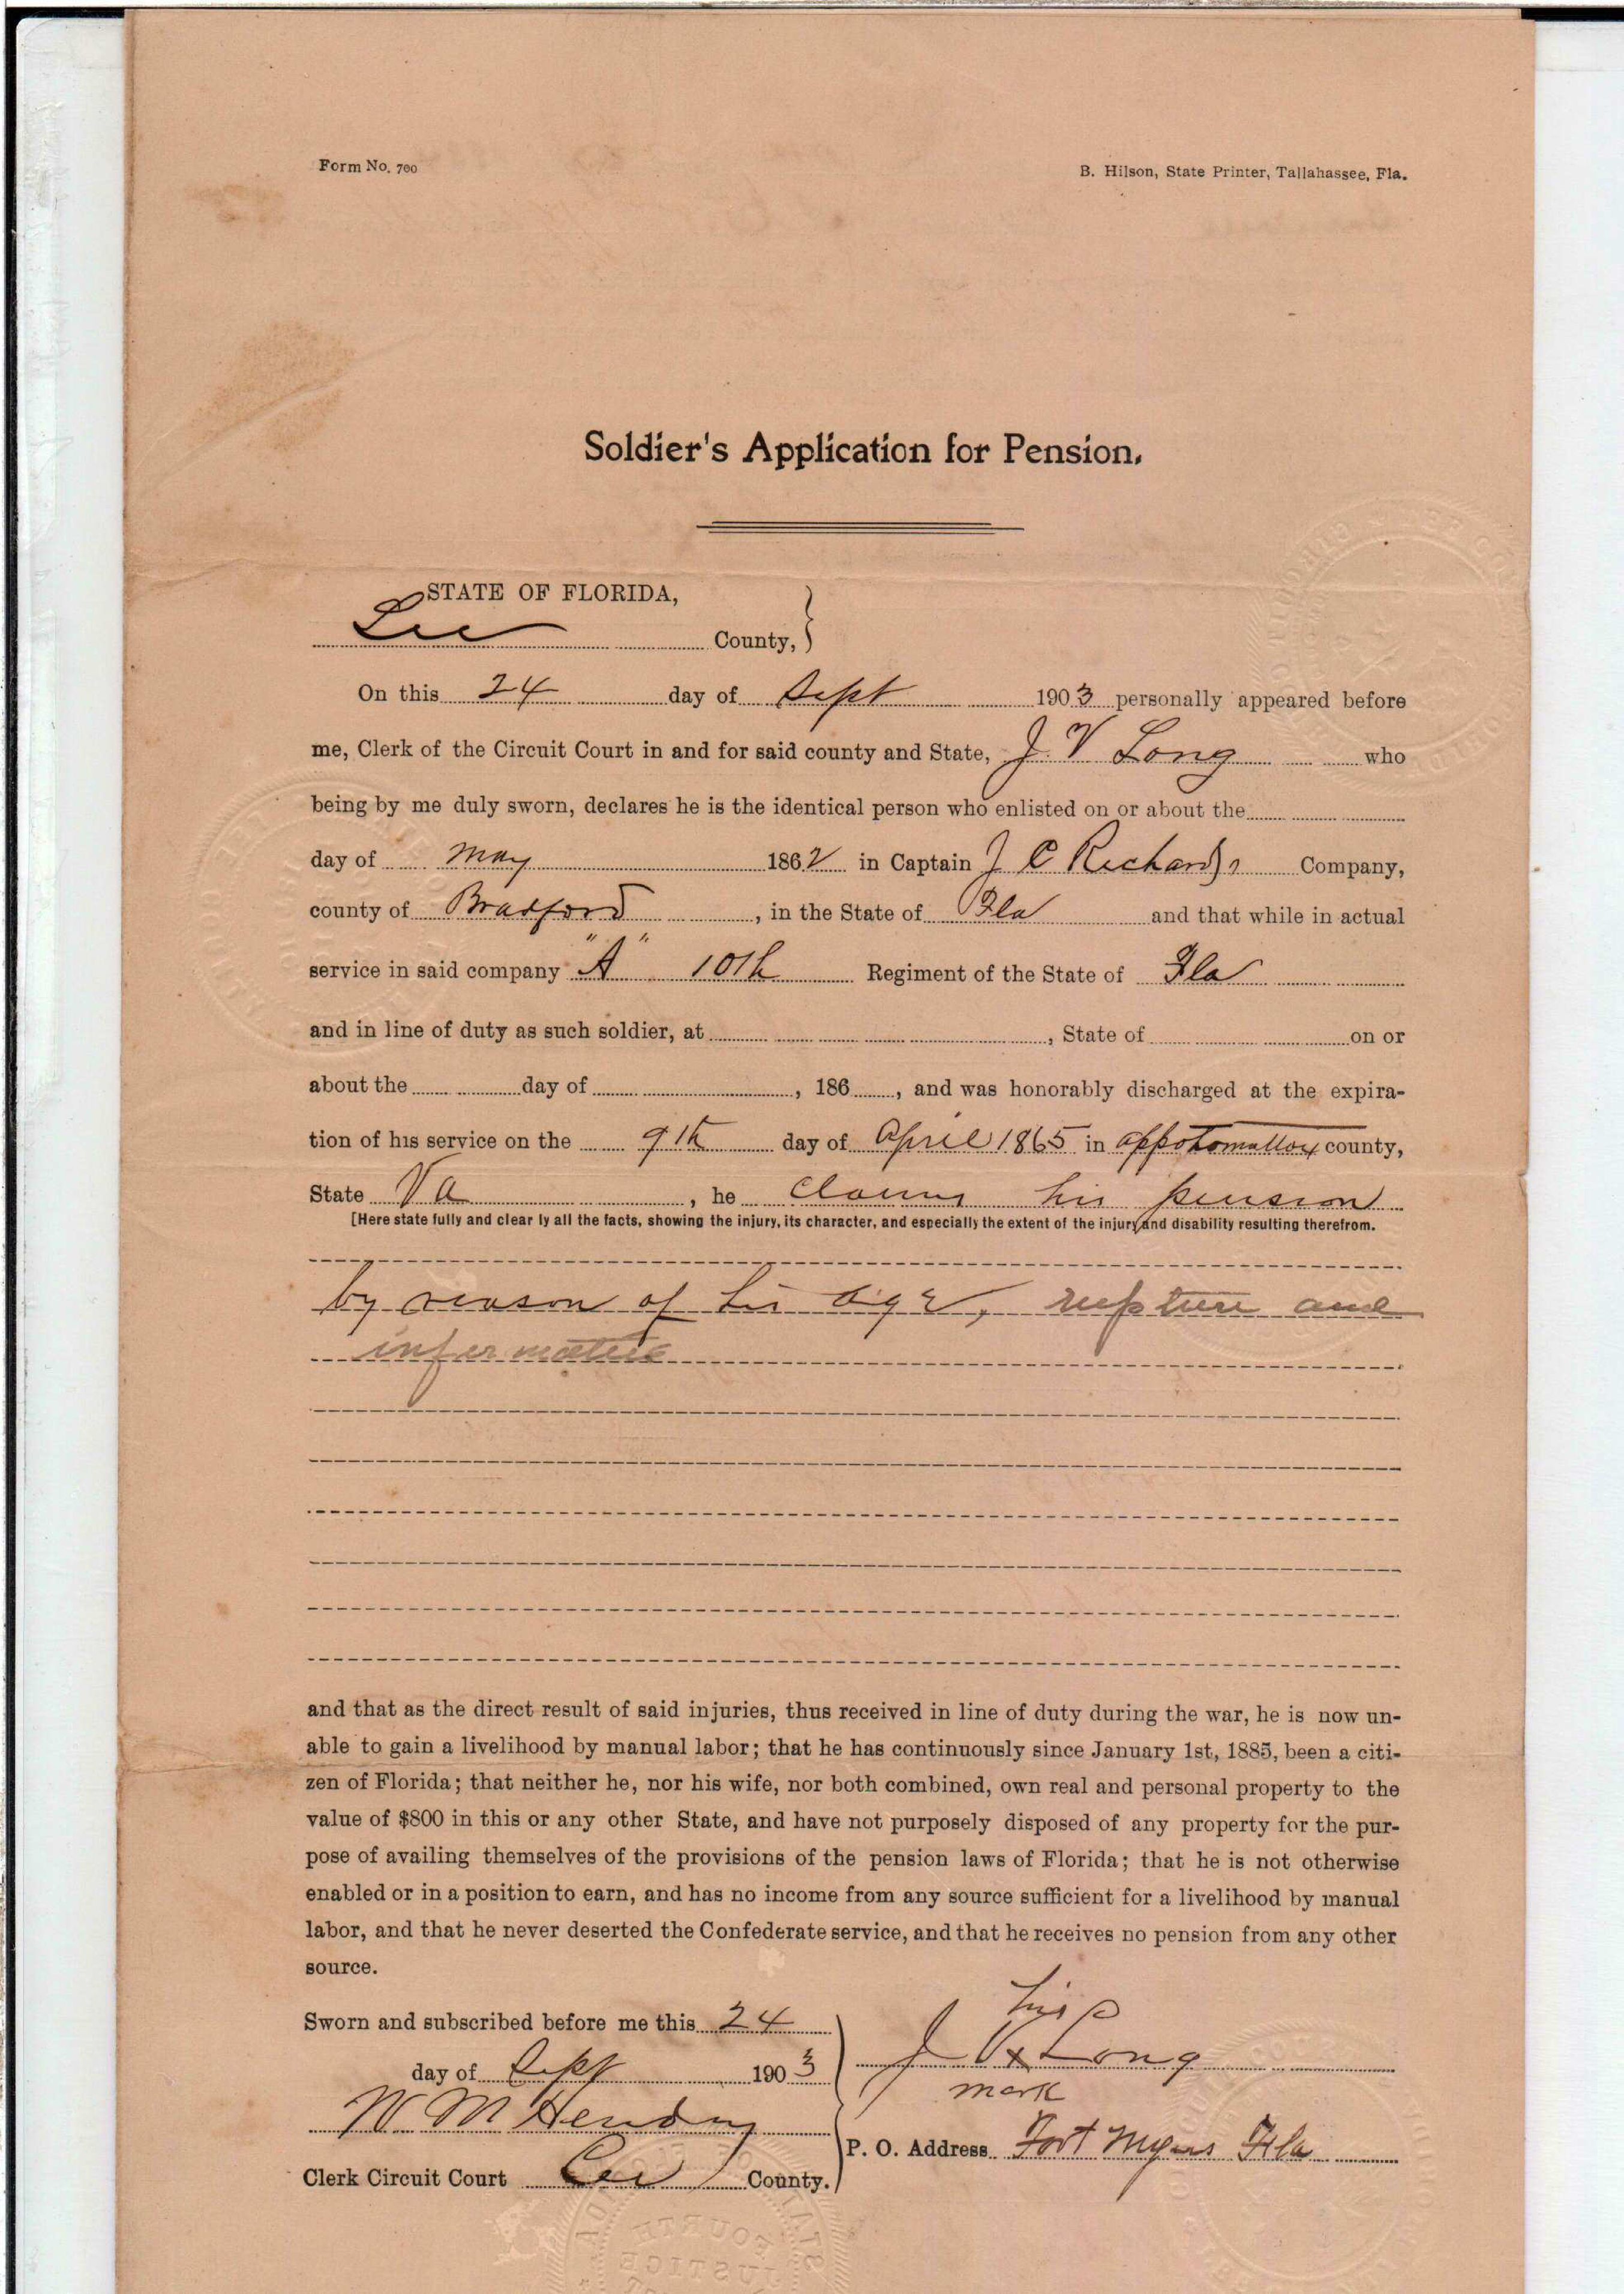 Form No. 700
B. Hilson, State Printer, Tallahassee, Fla.
Soldier's Application for Pension.
STATE OF FLORIDA,
Lee County,
On this 24 day of Sept 1903 personally appeared before
me, Clerk of the Circuit Court in and for said county and State, J. V Long who
being by me duly sworn, declares he is the identical person who enlisted on or about the
day of May 1862 in Captain J C Richards Company,
county of Bradford, in the State of Fla and that while in actual
service in said company "A" 10th Regiment of the State of Fla
and in line of duty as such soldier, at , State of on or
about the day of , 186 , and was honorably discharged at the expira-
tion of his service on the 9th day of April 1865 in appotomattox county,
State Va , he claims his pension
[Here state fully and clear ly all the facts, showing the injury, its character, and especially the extent of the injury and disability resulting therefrom.
by reason of his age, rupture and
infermaties
and that as the direct result of said injuries, thus received in line of duty during the war, he is now un-
able to gain a livelihood by manual labor; that he has continuously since January 1st, 1885, been a citi-
zen of Florida; that neither he, nor his wife, nor both combined, own real and personal property to the
value of $800 in this or any other State, and have not purposely disposed of any property for the pur-
pose of availing themselves of the provisions of the pension laws of Florida; that he is not otherwise
enabled or in a position to earn, and has no income from any source sufficient for a livelihood by manual
labor, and that he never deserted the Confederate service, and that he receives no pension from any other
source.
Sworn and subscribed before me this 24
day of Sept 1903
his
J V x Long
mark
W. M Hendry
P. O. Address Fort Myers Fla
Clerk Circuit Court Lee County.